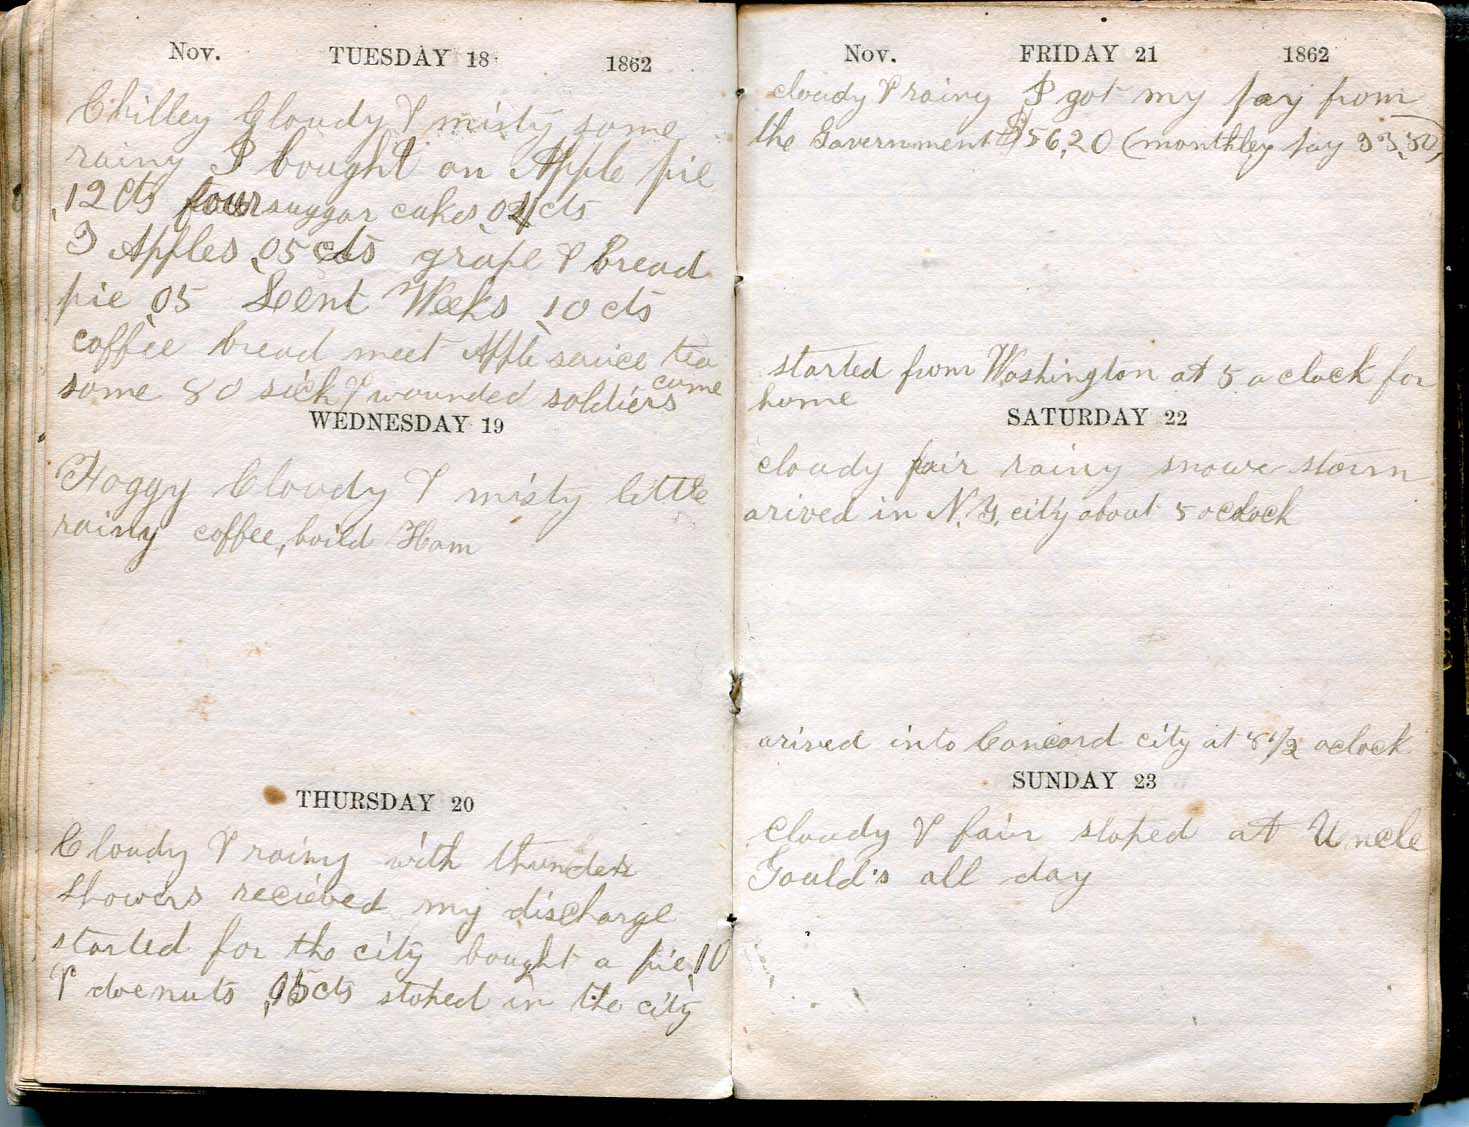 Nov. TUESDAY 18 1862
Chilley Cloudy & misty some
rainy I bought an Apple pie
,12 cts four suggar cakes ,04 cts
3 Apples ,05 cts grape & bread
pie ,05 Lent Weeks ,10 cts
coffee bread meet Apple sauice tea
some 80 sick & wounded soldiers came
WEDNESDAY 19
Foggy Cloudy & misty little
rainy coffee, boild Ham
THURSDAY 20
Cloudy & rainy with thunder
showers recieved my discharge
started for the city bought a pie ,10
& doenuts ,05 cts stoped in the city
Nov. FRIDAY 21 1862
cloudy & rainy I got my pay from
the Government $156,20 (monthley pay 33,50)
started from Washington at 5 o clock for
home
SATURDAY 22
cloudy fair rainy snowe storm
arived in N.Y. city about 5 oclock
arived into Concord city at 8 1/2 oclock
SUNDAY 23
cloudy & fair stoped at Uncle
Gould's all day